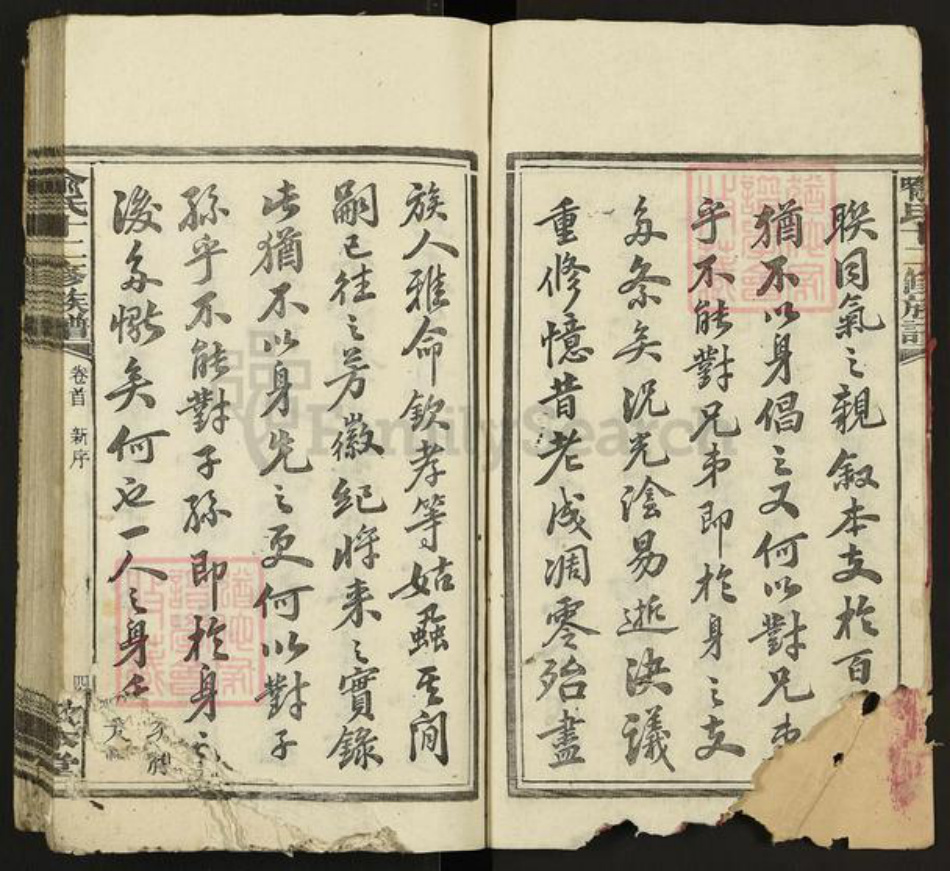 聯同氣之親叙本支於百
猶不以身倡之又何以對兄弟
乎不能對兄弟即於身之支
多忝矣況光陰易逝決議
重修憶昔老成凋零殆盡
族人雅命欽孝等姑蟲其間
嗣已往之芳徽紀將來之實錄
此猶不以身先之更何以對子
孫乎不能對子孫即於身之
後多慚矣何也一人之身
俞氏十二修族譜
卷首 新序
四
FamilySearch